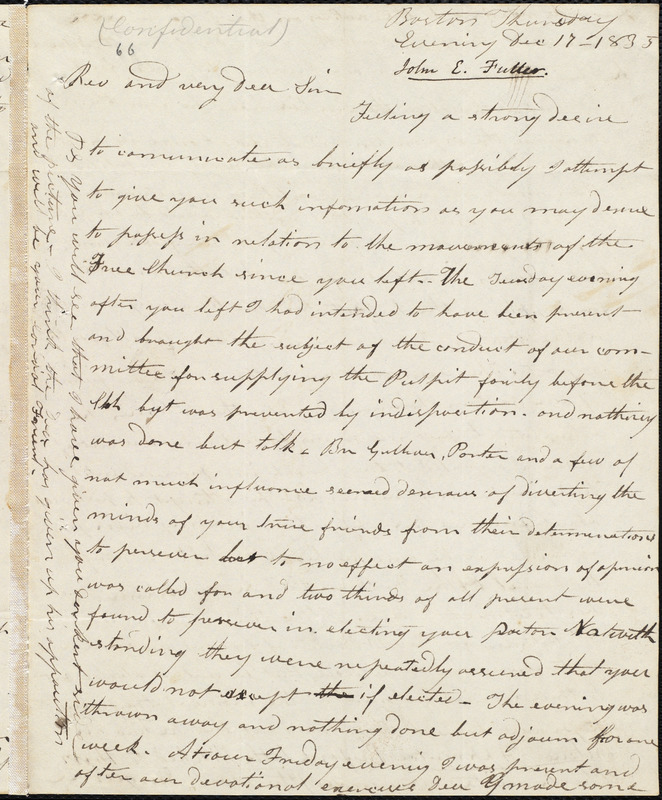 (Confidential)
66
Boston Thursday
Evening Dec 17 - 1835
John E. Fuller.
Rev and very dear Sir
Feeling a strong desire
to comunicate as briefly as possibly I attempt
to give you such infomation as you may desire
to possess in relation to the movements of the
Free Church since you left. The Tuesday evening
after you left I had intended to have been present
and brought the subject of the conduct of our com-
mittee for supplying the Pulpit fairly before the
Chh but was prevented by indisposition. and nothing
was done but talk. Bn Gulliver, Porter and a few of
not much influence seemed desirous of diverting the
minds of your true friends from their determinations
to persever but to no effect an expression of opinion
was called for and two thirds of all present were
found to persever in electing your pastor Natwith
standing they were repeatedly assured that you
would not except the if elected - The evening was
thrown away and nothing done but adjourn for one
week. At our Friday evening I was present and
after our devotional exercises Dea G made some
As you will see that I have given you
of the picture - I think the has given up his opposition
and will be your